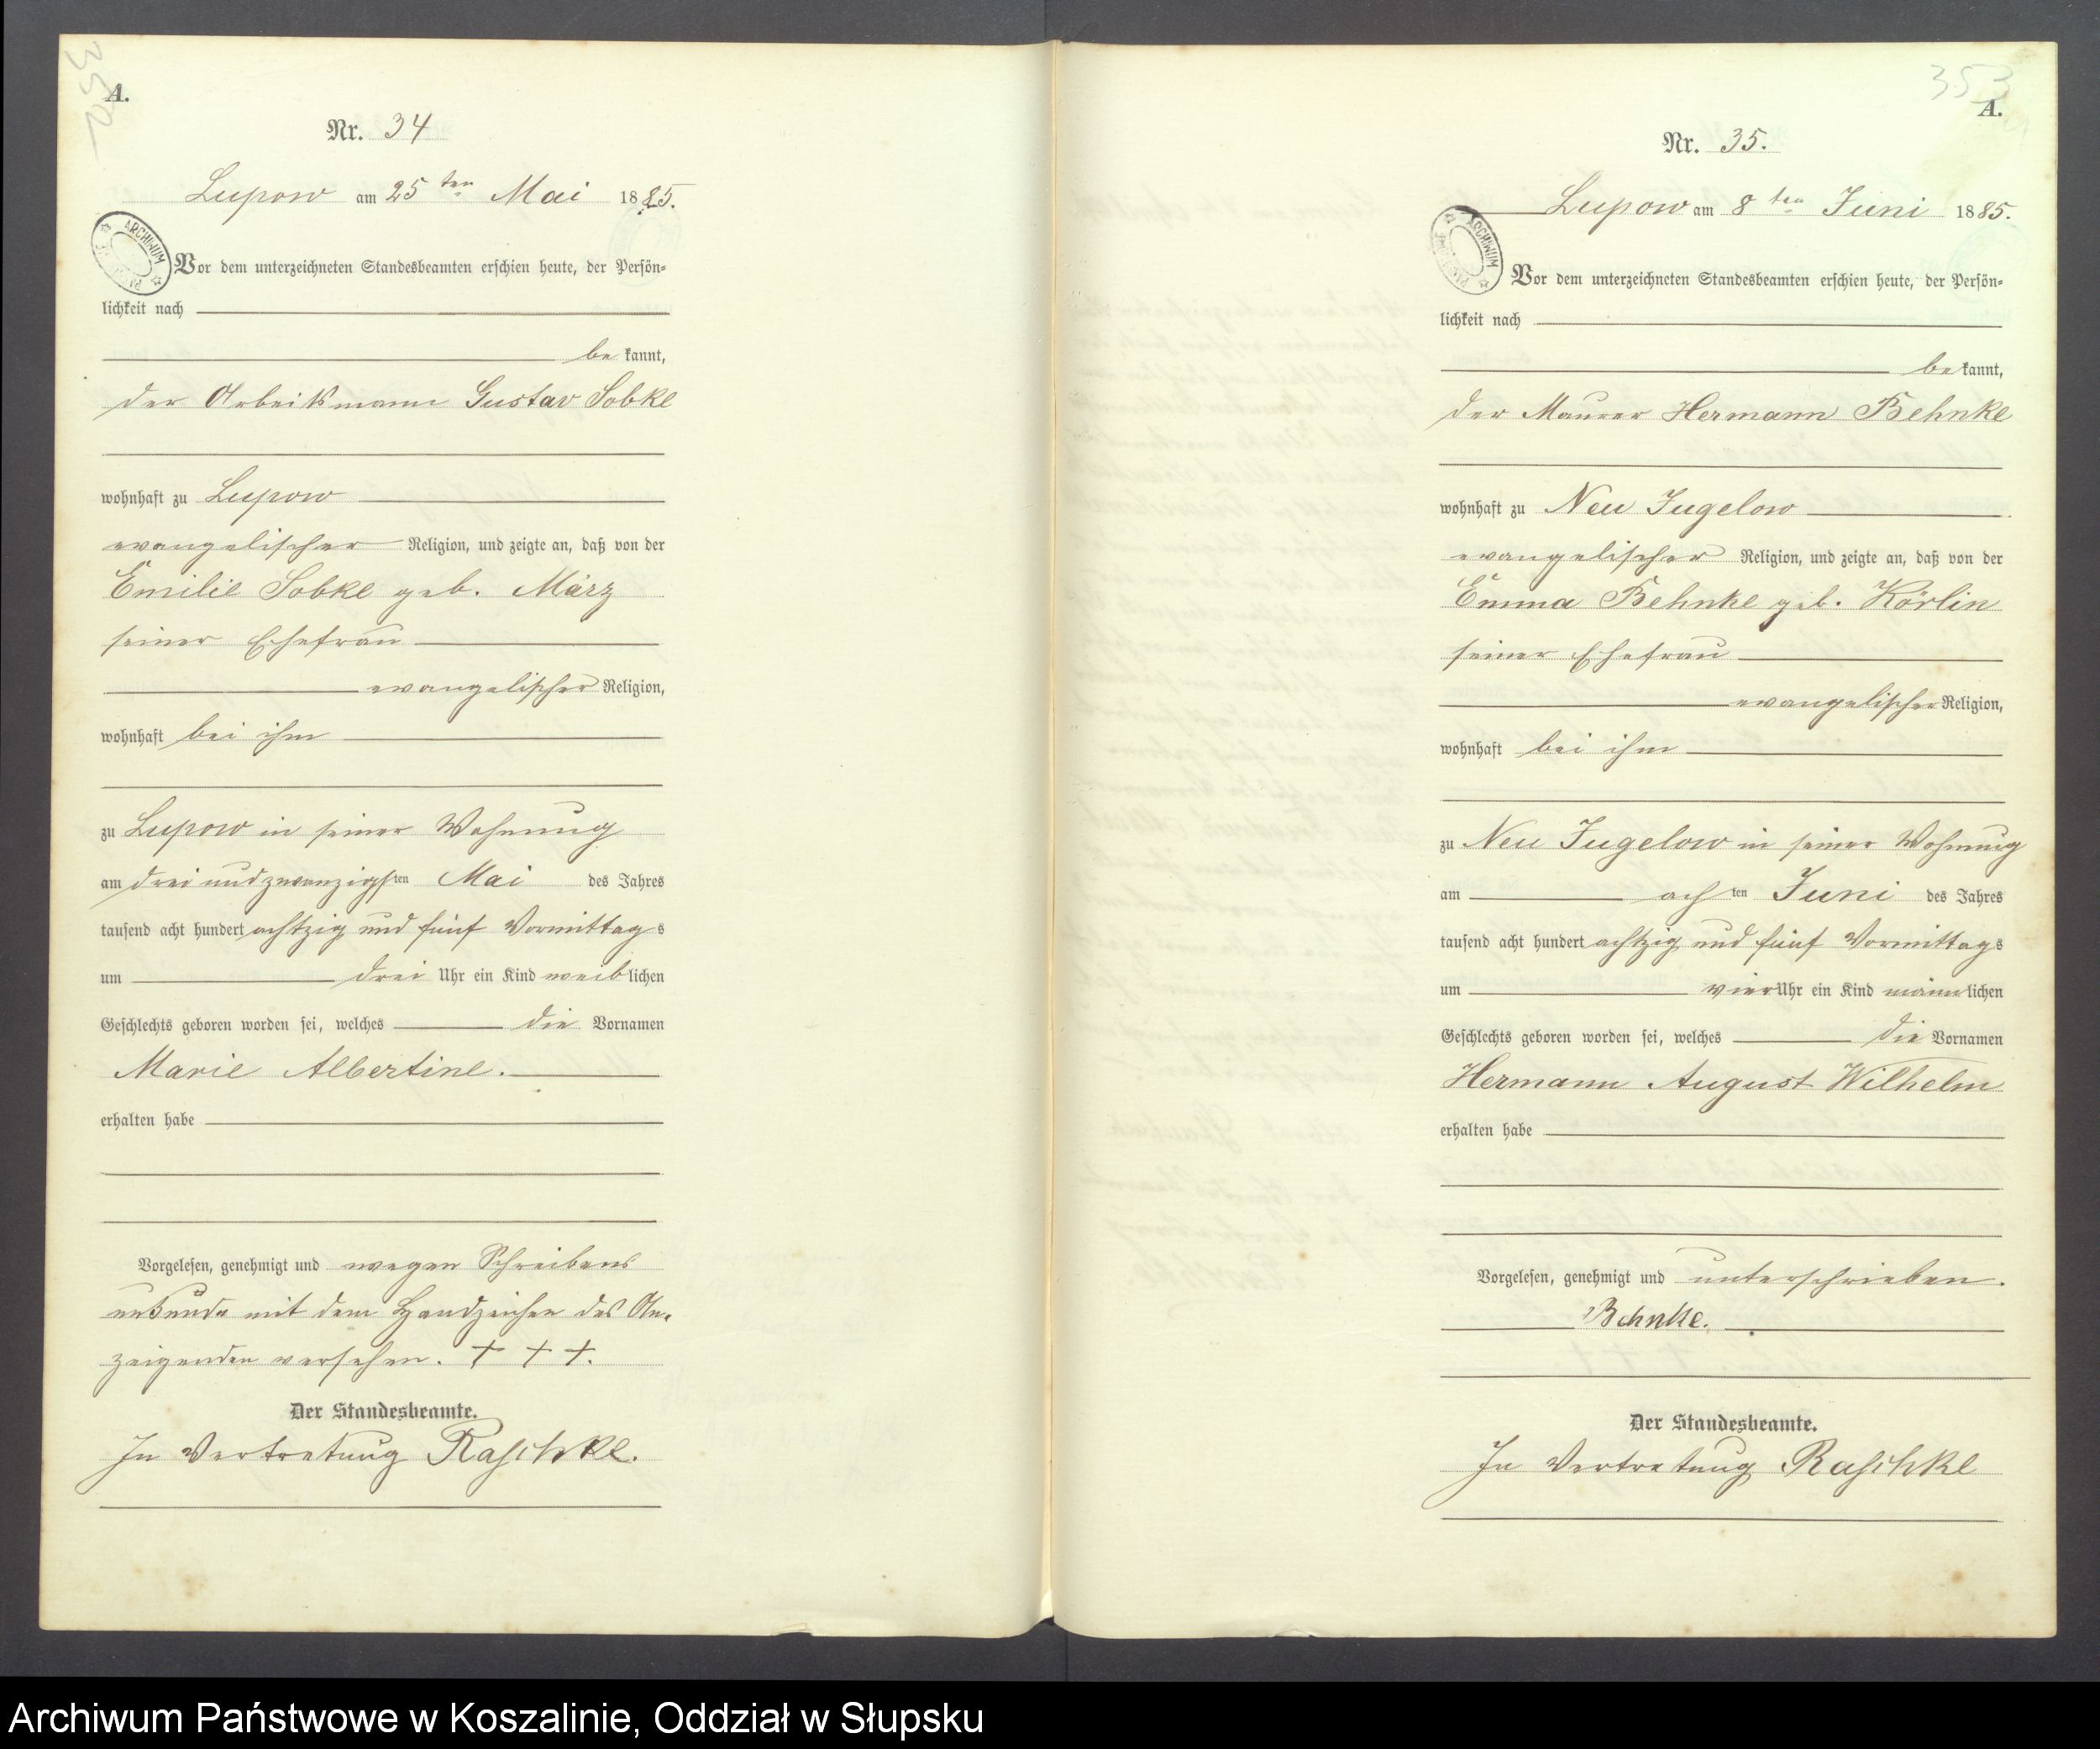 352
A.
Nr. 34
Lupow am 25 ten Mai 1885.
ARCHIWUM
Vor dem unterzeichneten Standesbeamten erschien heute, der Persön-
lichkeit nach
be kannt,
der Arbeitsmann Gustav Sobke
wohnhaft zu Lupow
evangelischer Religion, und zeigte an, daß von der
Emilie Sobke geb. März
seiner Ehefrau
evangelischer Religion,
wohnhaft bei ihm
zu Lupow in seiner Wohnung
am dreiundzwanzigsten Mai des Jahres
tausend acht hundert achtzig und fünf Vormittags
um drei Uhr ein Kind weiblichen
Geschlechts geboren worden sei, welches die Vornamen
Marie Albertine.
erhalten habe
Vorgelesen, genehmigt und wegen Schreibens
unkunde mit dem Handzeichen des An-
zeigenden versehen. + + +.
Der Standesbeamte.
In Vertretung Raschke.
353
A.
Nr. 35.
Lupow am 8 ten Juni 1885.
ARCHIWUM
Vor dem unterzeichneten Standesbeamten erschien heute, der Persön-
lichkeit nach
bekannt,
der Maurer Hermann Behnke
wohnhaft zu Neu Jugelow
evangelischer Religion, und zeigte an, daß von der
Emma Behnke geb. Körlin
seiner Ehefrau
evangelischer Religion,
wohnhaft bei ihm
zu Neu Jugelow in seiner Wohnung
am achten Juni des Jahres
tausend acht hundert achtzig und fünf Vormittags
um vier Uhr ein Kind männlichen
Geschlechts geboren worden sei, welches die Vornamen
Hermann August Wilhelm
erhalten habe
Vorgelesen, genehmigt und unterschrieben.
Behnke.
Der Standesbeamte.
In Vertretung Raschke
Archiwum Państwowe w Koszalinie, Oddział w Słupsku